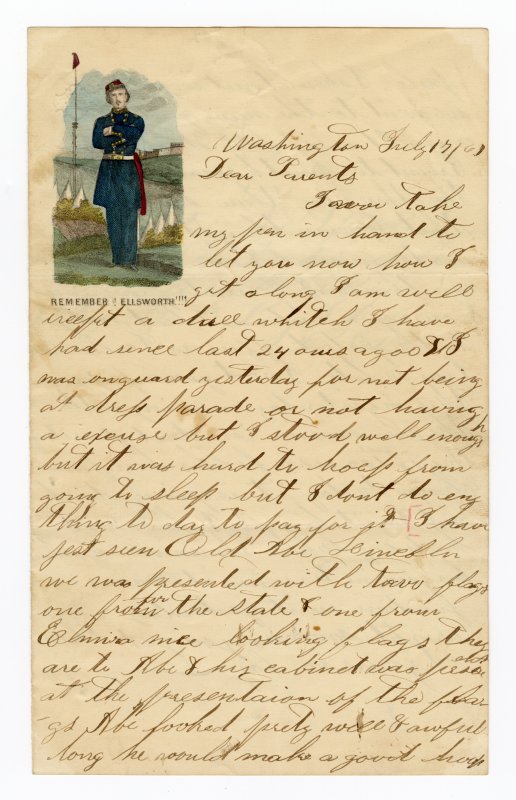 Washington July 17/61
Dear Parents
I now take
my pen in hand to
let you now how I
REMEMBER ELLSWORTH!!!!
get along I am well
a whitch I have
had sence last 24 ours agoo & I
was onguard yesterday for not being
at dress parade or not having
a excuse but I stood well enough
but it was hard to keep from
going to sleep but I dont do eny
thing to day to pay for it I have
jest seen Old Abe Lincoln
we was presented with towo flags
one from for the state & one from
Elmira nice looking flags they
are to Abe & his cabinet was
at the presentaion of the
gs Abe looked prety well & awful
long he would make a good hoop